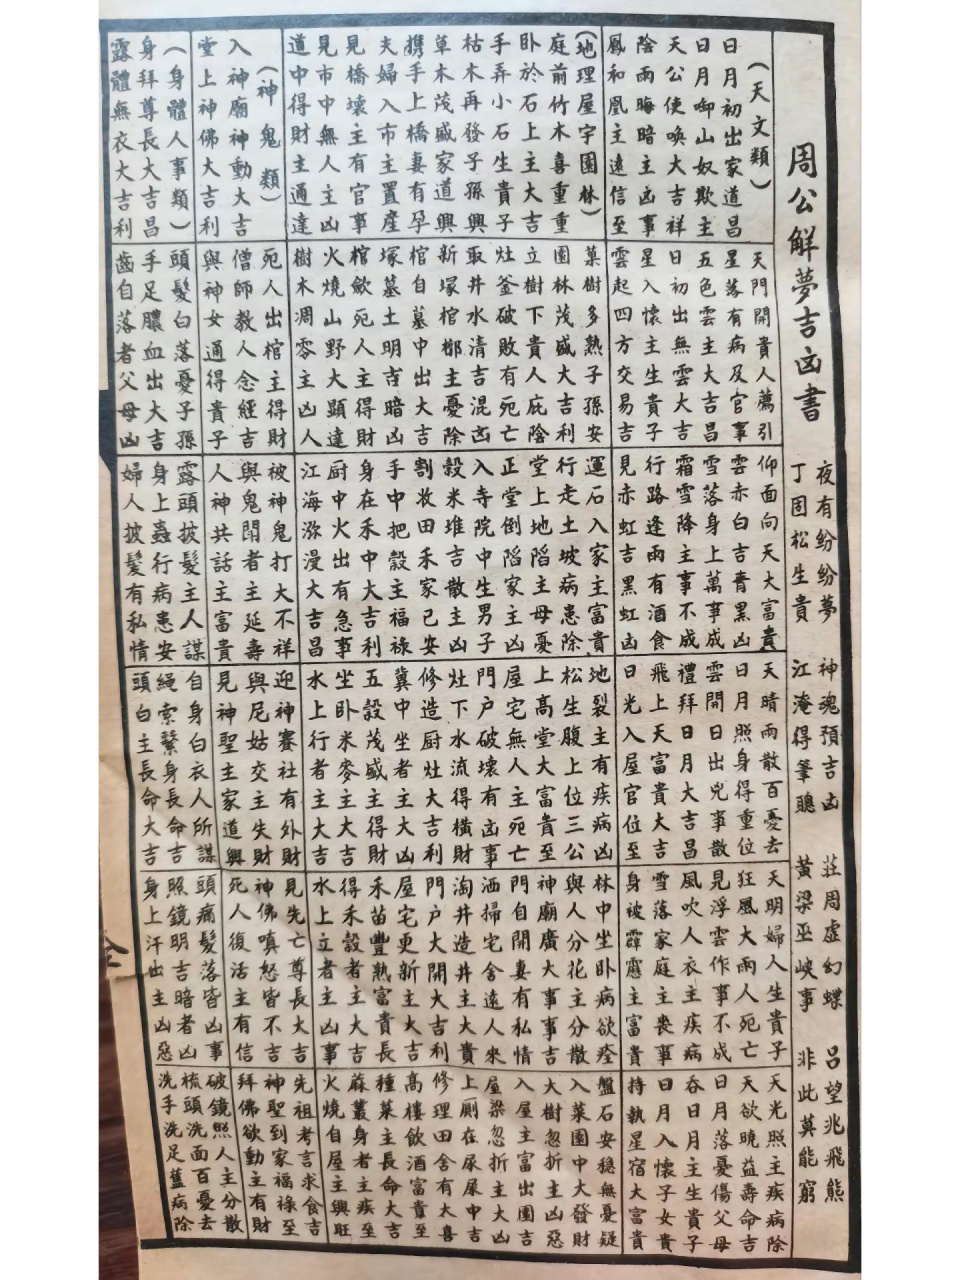 周公解夢吉凶書
夜有纷纷夢 神魂預吉凶 莊周虛幻蝶 呂望兆飛熊
丁固松生貴 江淹得筆聰 黃梁巫峽事 非此莫能窮
(天文類)
日月初出家道昌
日月啣山奴欺主
天公使喚大吉祥
陰雨晦暗主凶事
鳳和凰主遠信至
天門開貴人薦引
星落有病及官事
五色雲主大吉昌
日初出無雲大吉
星入懷主生貴子
雲起四方交易吉
仰面向天大富貴
雲赤白吉青黑凶
雪落身上萬事成
霜雪降主事不成
行路逢雨有酒食
見赤虹吉黑虹凶
天晴雨散百憂去
日月照身得重位
雲開日出兇事散
禮拜日月大吉昌
飛上天富貴大吉
日光入屋官位至
天明婦人生貴子
狂風大雨人死亡
見浮雲作事不成
風吹人衣主疾病
雪落家庭主喪事
身被霹靂主富貴
天光照主疾病除
天欲曉益壽命吉
日月落憂傷父母
吞日月主生貴子
日月入懷子女貴
持執星宿大富貴
(地理屋宇園林)
庭前竹木喜重重
卧於石上主大吉
手弄小石生貴子
枯木再發子孫興
草木茂盛家道興
携手上橋妻有孕
夫婦入市主置產
見橋壞主有官事
見市中無人主凶
道中得財主通達
菓樹多熟子孫安
園林茂盛大吉利
立樹下貴人庇陰
灶釜破敗有死亡
取井水清吉混凶
新塚棺槨主憂除
棺自墓中出大吉
塚墓土明吉暗凶
棺歛死人主得財
火燒山野大顯達
樹木凋零主凶人
運石入家主富貴
行走土坡病患除
堂上地陷主母憂
正堂倒陷家主凶
入寺院中生男子
穀米堆吉散主凶
割收田禾家已安
手中把穀主福祿
身在禾中大吉利
厨中火出有急事
江海漲漫大吉昌
地裂主有疾病凶
松生腹上位三公
上高堂大富貴至
屋宅無人主死亡
門户破壞有凶事
灶下水流得橫財
修造厨灶大吉利
糞中坐者主大凶
五穀茂盛主得財
坐卧米麥主大吉
水上行者主大吉
林中坐卧病欲痊
與人分花主分散
神廟廣大事事吉
門自開妻有私情
洒掃宅舍遠人來
淘井造井主大貴
門户大開大吉利
屋宅更新主大吉
禾苗豐熟富貴長
得禾穀者主大吉
水上立者主凶事
盤石安穩無憂疑
入菜園中大發財
大樹忽折主凶惡
入屋主富出園吉
屋梁忽折主大凶
上厠在尿屎中吉
修理田舍有大喜
高樓飲酒富貴至
種菜主長命大吉
蔴叢身者主疾至
火燒自屋主興旺
(神鬼類)
入神廟神動大吉
堂上神佛大吉利
死人出棺主得財
僧師教人念經吉
與神女通得貴子
被神鬼打大不祥
與鬼鬪者主延壽
人神共話主富貴
迎神賽社有外財
與尼姑交主失財
見神聖主家道興
見先亡尊長大吉
神佛嗔怒皆不吉
死人復活主有信
先祖考言求食吉
神聖到家福祿至
拜佛欲動主有財
(身體人事類)
身拜尊長大吉昌
露體無衣大吉利
頭髮白落憂子孫
手足膿血出大吉
齒自落者父母凶
露頭披髮主人謀
身上蟲行病患安
婦人披髮有私情
自身白衣人所謀
繩索繫身長命吉
頭白主長命大吉
頭痛髮落皆凶事
照鏡明吉暗者凶
身上汗出主凶惡
破鏡照人主分散
梳頭洗面百憂去
洗手洗足舊病除